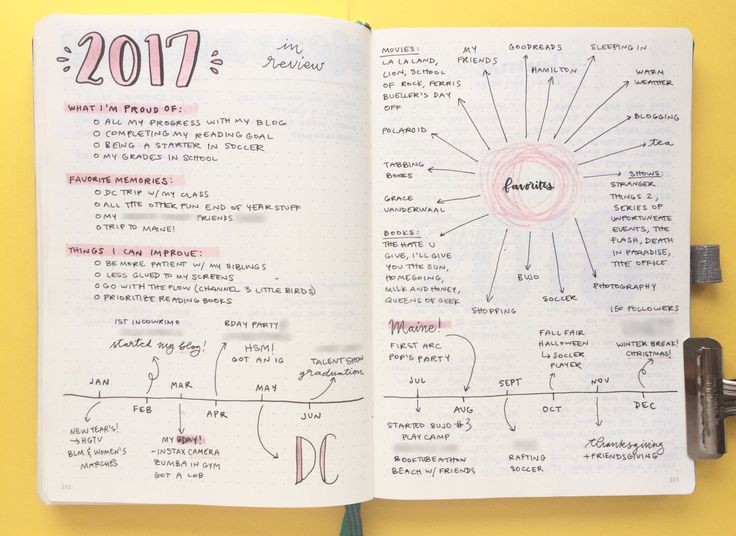 2017
in
review
WHAT I'M PROUD OF:
O ALL MY PROGRESS WITH MY BLOG
O COMPLETING MY READING GOAL
O BEING A STARTER IN SOCCER
O MY GRADES IN SCHOOL
FAVORITE MEMORIES:
O DC TRIP W/ MY CLASS
O ALL THE OTHER FUN END OF YEAR STUFF
O MY FRIENDS
O TRIP TO MAINE!
THINGS I CAN IMPROVE:
O BE MORE PATIENT W/ MY SIBLINGS
O LESS GLUED TO MY SCREENS
O GO WITH THE FLOW (CHANNEL 3 LITTLE BIRDS)
O PRIORITIZE READING BOOKS
1ST
started my blog!
BDAY PARTY
HSM!
GOT AN IG
TALENT SHOW
graduation
JAN
FEB
MAR
APR
MAY
JUN
NEW YEAR'S!
→ HGTV
BLM & WOMEN'S
MARCHES
MY BDAY!
- INSTAX CAMERA
ZUMBA IN GYM
GOT A LOB
DC
212
MOVIES:
LA LA LAND,
LION, SCHOOL
OF ROCK, FERRIS
BUELLER'S DAY
OFF
MY
FRIENDS
GOODREADS
HAMILTON
SLEEPING IN
WARM
WEATHER
BLOGGING
tea
POLAROID
TABBING
BOOKS
GRACE
VANDERWAAL
favorites
SHOWS:
STRANGER
THINGS 2,
SERIES OF
UNFORTUNEATE
EVENTS, THE
FLASH, DEATH
IN PARADISE,
THE OFFICE
BOOKS:
THE HATE U
GIVE, I'LL GIVE
YOU THE SUN,
HOMEGOING,
MILK AND HONEY,
QUEENS OF GEEK
SHOPPING
BUJO
SOCCER
PHOTOGRAPHY
150 FOLLOWERS
Maine!
FIRST ARC
POP'S PARTY
FALL FAIR
HALLOWEEN
↳ SOCCER
PLAYER
WINTER BREAK!
CHRISTMAS!
JUL
AUG
SEPT
OCT
NOV
DEC
STARTED BUJO #3
PLAY CAMP
BOOKTUBEATHON
BEACH W/ FRIENDS
RAFTING
SOCCER
thanksgiving
+ FRIENDSGIVING
213